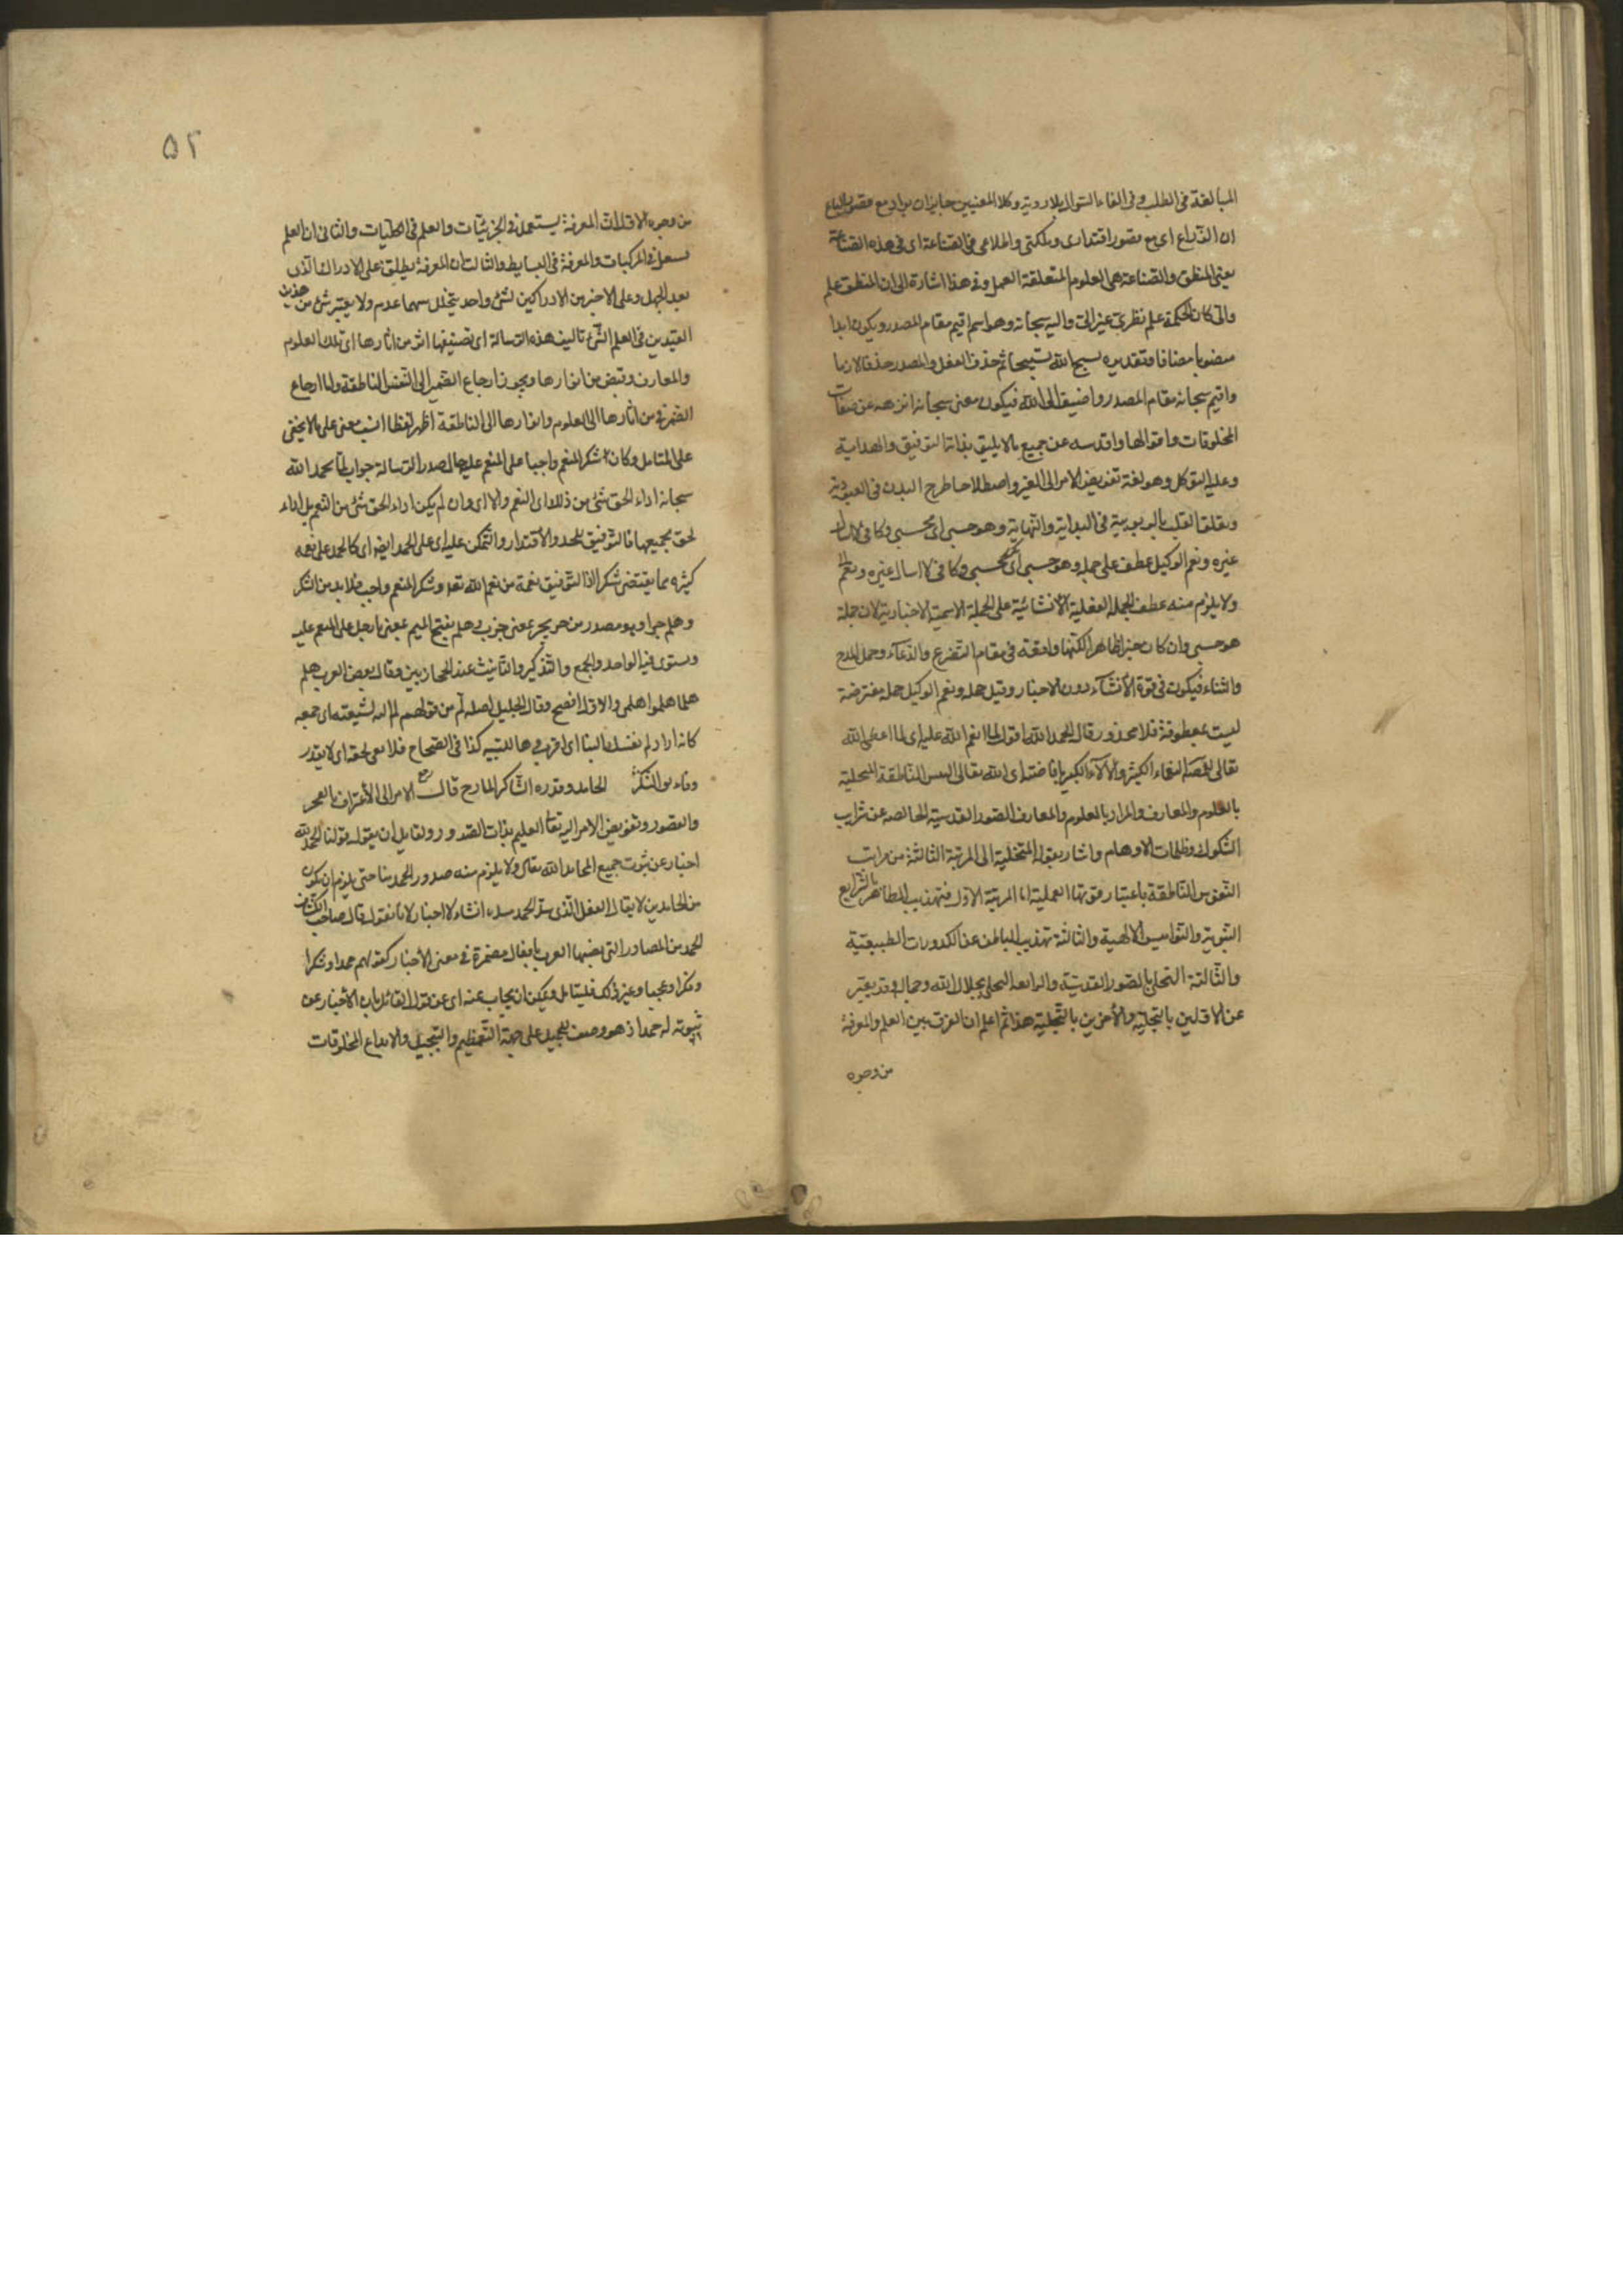 المبالغة فى الطلب وفى الغاء السؤال بلا روية وكلا المعنيين جايزان يراد مع قصور الباع
ان الذراع اى مع قصور اقتدارى وملكتى واطلاعى فى القناعة اى فى هذه الصناعة
يعنى المنطق والصناعة هى العلوم المتعلقة العمل وفى هذا اشارة الى ان المنطق علم
والى كان الحكمة علم نظرى غير الى واليه سبحانه وهو اسم اقيم مقام المصدر ويكون ابدا
منصوبا مضافا وتقديره سبح الله تسبيحا ثم حذف الفعل والمصدر حذفا لازما
واقيم سبحانه مقام المصدر واضيف الى الله فيكون معنى سبحانه انزهه عن صفات
المخلوقات واقوالها واقدسه عن جميع مالا يليق بذاته التوفيق والهداية
وعليه التوكل وهو لغة تفويض الامر الى الغير واصطلاحا طرح البدن فى العبودية
وتعلق القلب بالربوبية فى البداية والنهاية وهو حسبى اى محسبى وكافى لا اسال
غيره ونعم الوكيل عطف على جملة وهو حسبى اى محسبى وكافى لا اسال غيره ونعم
ولا يلزم منه عطف الجملة الفعلية الانشائية على الجملة الاسمية الاخبارية لان جملة
هو حسبى وان كان خبرا ظاهرا لكنها واقعة فى مقام التضرع والدعاء وحمل المدح
واثناء فيكون فى قوة الانشاء دون الاخبار وقيل جملة ونعم الوكيل جملة معترضة
ليست بمعطوفة فلا محذور قال الحمد لله اقول لما انعم الله عليه اى لما اعطى الله
تعالى النعماء الكثير والآلاء الكبير بافاضته اى الله تعالى النفس الناطقة المتحلية
بالعلوم والمعارف والمراد بالعلوم والمعارف الصور القدسية الخالصة عن شرايب
الشكوك وظلمات الاوهام واشار بقوله المتحلية الى المرتبة الثالثة من مراتب
النفوس الناطقة باعتبار قوتها العملية اما المرتبة الاولى فتهذيب الظاهر بالشرايع
النبوية والنواميس الالهية والثالثة تهذيب الباطن عن الكدورات الطبيعية
والثالثة التحلى بالصور القدسية والرابعة التحلى بجلال الله وجماله وقد يعبر
عن الاولين بالتخلية والاخرين بالتحلية هذا ثم اعلم ان الفرق بين العلم والمعرفة
من وجوه
۵۲
من وجوه الاول ان المعرفة يستعمل فى الجزئيات والعلم فى الكليات والثانى ان العلم
يستعمل فى المركبات والمعرفة فى البسايط والثالث ان المعرفة يطلق على الادراك الذى
بعد الجهل وعلى الاخير من الادراكين لشئ واحد يتخلل بينهما عدم ولا يعتبر شئ من هذين
القيدين فى العلم تاليف هذه الرسالة اى تصنيفها اثر من اثارها اى تلك العلوم
والمعارف وقبض من انوارها ويجوز ارجاع الضمير الى النفس الناطقة واما ارجاع
الضمير فى من اثارها الى العلوم وانوارها الى الناطقة اظهر لفظا انسب معنى على ما لا يخفى
على المتامل وكان شكر المنعم واجبا على المنعم عليه الى صدر الرسالة جواب لما بحمد الله
سبحانه اداء لحق شئ من ذلك اى النعم والا اى وان لم يكن اداء لحق شئ من النعم بل اداء
لحق بجميعها فالتوفيق للحمد والاقتدار والتمكن عليه اى على الحمد ايضا اى كالحمد على نعمه
كثيره مما يقتضى شكرا اذ التوفيق نعمة من نعم الله تعالى وشكر المنعم واجب فلا بد من الشكر
وهلم جرا وهو مصدر من جر يجر بمعنى جزب وهلم بفتح الميم بمعنى يا رجل على المنعم عليه
وستوى فيه الواحد والجمع والتذكير والتانيث عند الحجازيين وقال بعض العرب هلم
هلما هلموا هلمى والاول افصح وقال الخليل اصله لم من قولهم لم الله شعثه اى جمعه
كانه اراد لم نفسك الينا اى اقرب وها للتنبيه كذا فى الصحاح فلا يفى لحقه اى لا يقدر
الحامد وقدره الشاكر المادح قال الامر الى الاعتراف بالعجز
والقصور وتفويض الامر اليه تعالى العليم بذات الصدور ولقايل ان يقول قولنا الحمد لله
اخبار عن ثبوت جميع المحامد لله تعالى ولا يلزم منه صدور الحمد منا حتى يلزم ان نكون
من الحامدين لا يقال الفعل الذى انشاء لا اخبار لانا نقول قال صاحب الكشاف
الحمد من المصادر التى ينصبها العرب بافعال مضمرة فى معنى الاخبار كقولهم حمدا وشكرا
وكفرا وعجبا وغير ذلك فليتامل ويمكن ان يجاب عنه اى عن قول القائل بان الاخبار عن
ثبوته له حمد اذ هو وصف بالجميل على جهة التعظيم والتبجيل والابداع المخلوقات